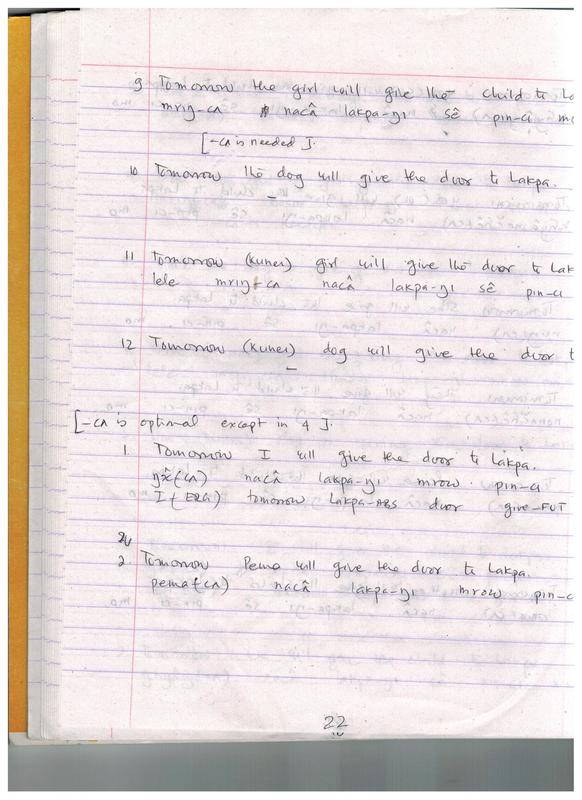 9 Tomorrow the girl will give the child to La
mriŋ-cʌ nacâ lakpa-ŋı sê pin-ci mo
[-cʌ is needed].
10 Tomorrow the dog will give the door to Lakpa.
11 Tomorrow (kuner) girl will give the door to Lak
lele mriŋ-cʌ nacâ lakpa-ŋı sê pin-ci
12 Tomorrow (kuner) dog will give the door t
[-cʌ is optimal except in 4].
1. Tomorrow I will give the door to Lakpa.
(cʌ) nacâ lakpa-ŋı mrow pin-ci
I (ERG) tomorrow Lakpa-ABS door give-FUT
2. Tomorrow Pema will give the door to Lakpa.
pema(cʌ) nacâ lakpa-ŋı mrow pin-c
22